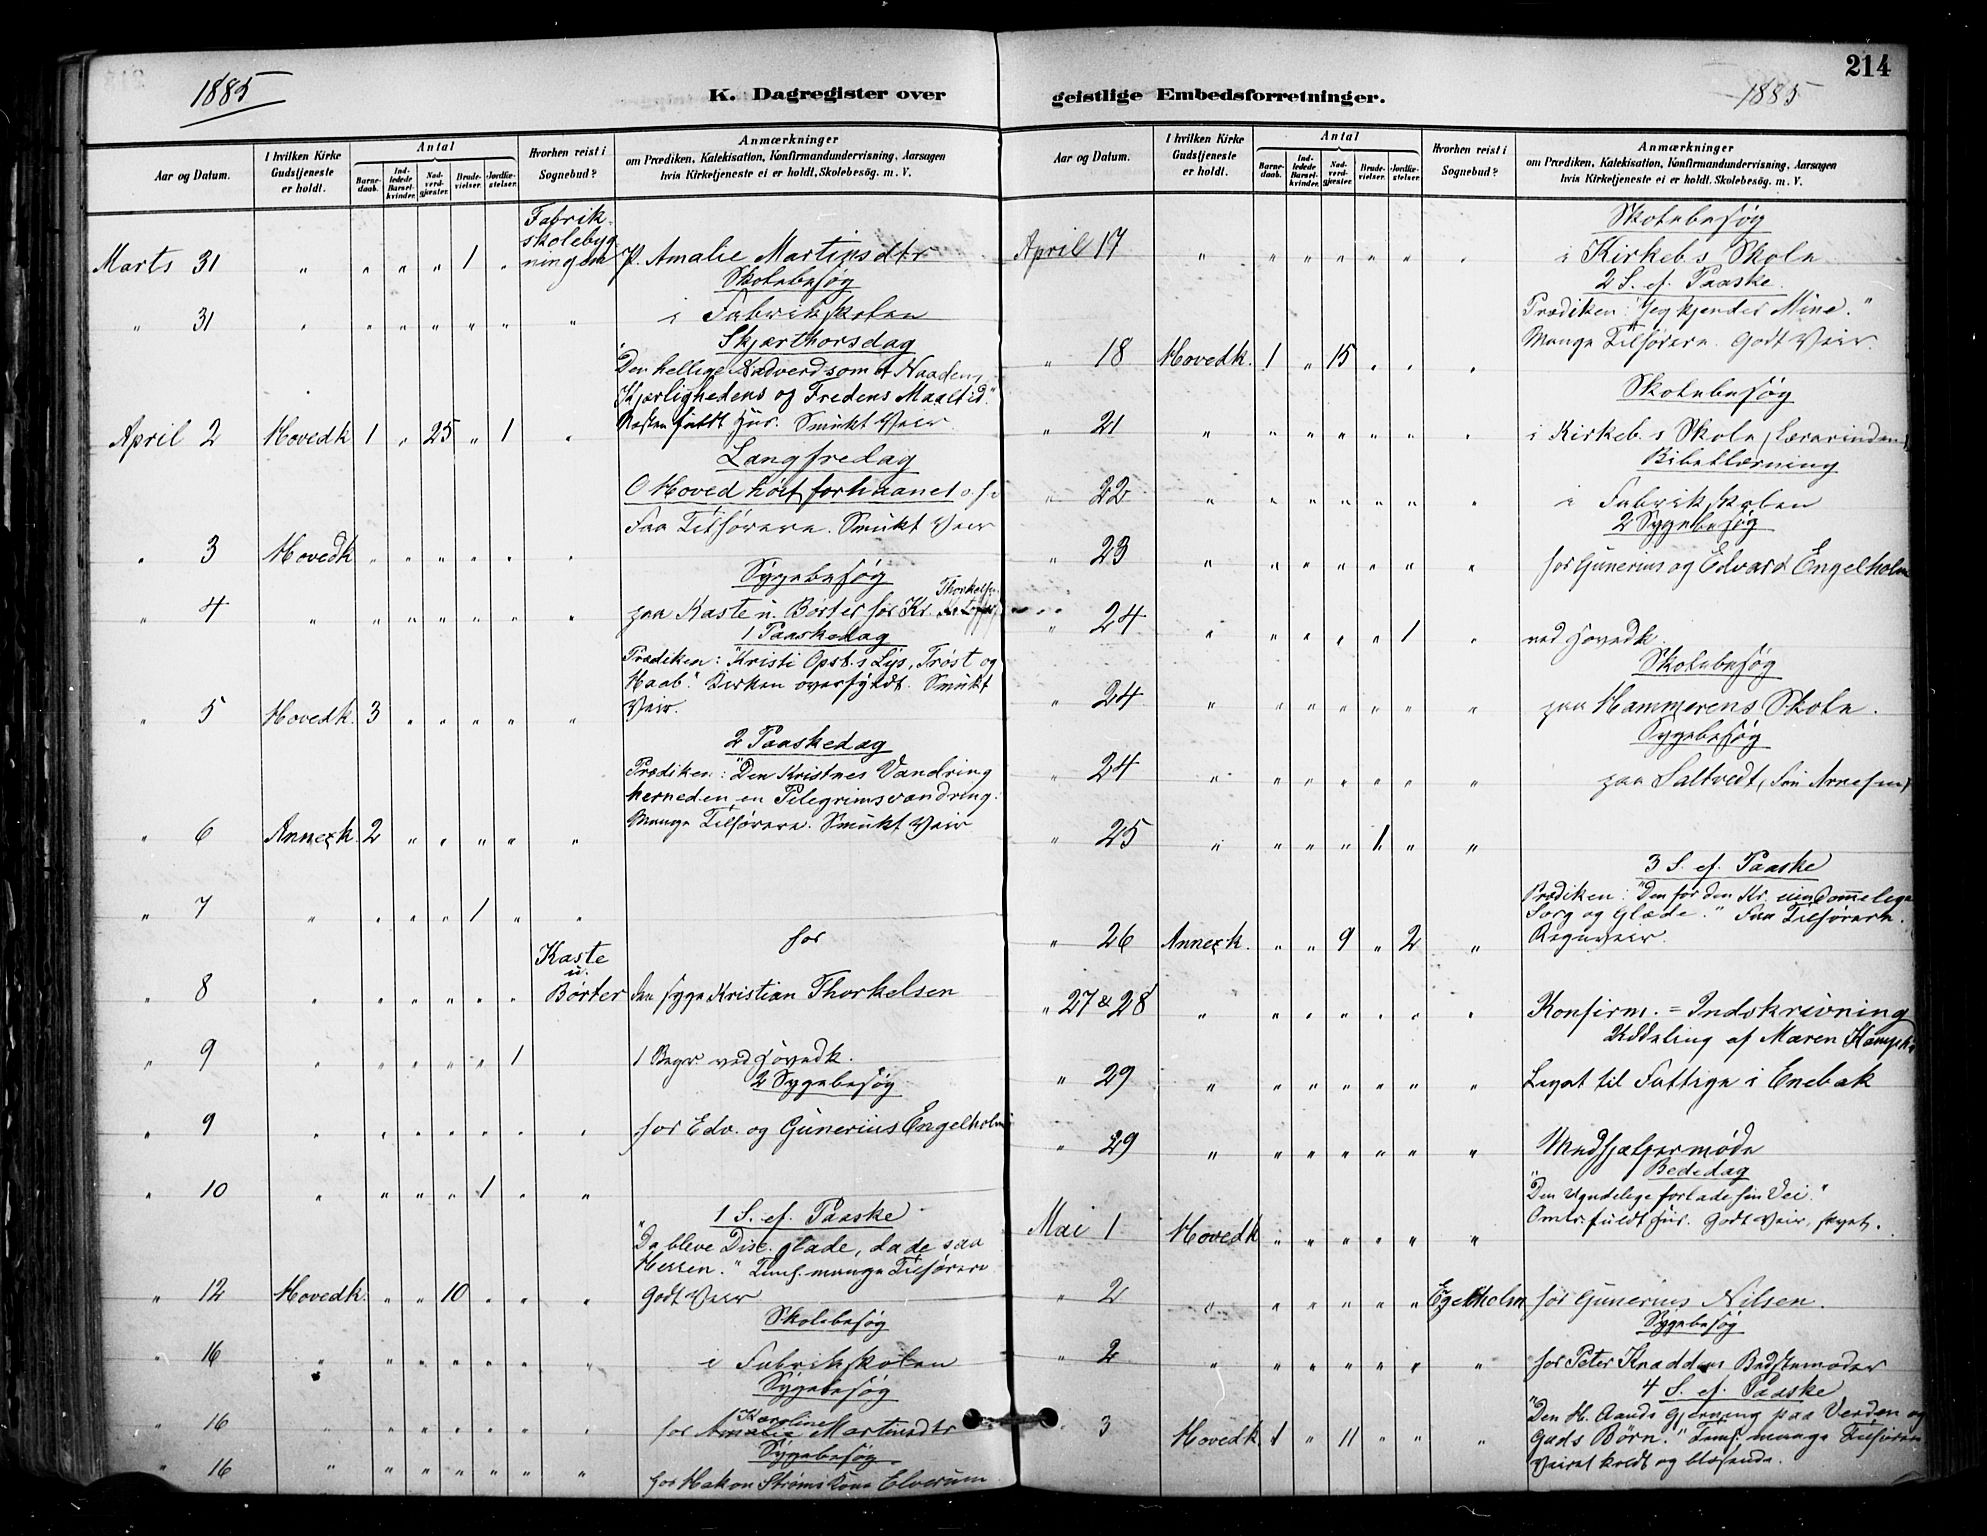 1885
K. Dagregister over
Aar og Datum.
I hvilken Kirke Gudstjeneste er holdt.
Antal
Barnedaab.
Indledede Barselkvinder.
Nadverdgjester.
Brudevielser.
Jordfæstelser.
Hvorhen reist i Sognebud?
Anmærkninger
om Prædiken, Katekisation, Konfirmandundervisning, Aarsagen
hvis Kirketjeneste ei er holdt, Skolebesög. m. V.
Marts 31 " " " " 1 " Fabrikskolebygningen p. Amalie Martinsdtr
Skolebesøg
" 31 " " " " " " " i Fabrikskolen
Skjærthorsdag
Den hellige Nadverd som Naadens,
Kjærlighedens og Fredens Maaltid."
April 2 Hovedk 1 " 25 " 1 " Næsten fuldt Hus. Smukt Veir.
Langfredag
O Hoved høit forhaanet o.s.v
Faa Tilhørere. Smukt Veir
" 3 Hovedk " " " " " "
Sygebesøg
" 4 " " " " " " " paa Kaste u. Børter for Kr. Thorkelsen
1 Paaskedag
Prædiken: "Kristi Opst.s Lys, Trøst og
Haab." Kirken overfyldt. Smukt
" 5 Hovedk. 3 " " " " " Veir.
2 Paaskedag
Prædiken: "Den Kristnes Vandring
herneden en Pilegrimsvandring.
" 6 Annexk. 2 " " " " " Mange Tilhørere. Smukt Veir
" 7 " " " " 1 " "
for
" 8 " " " " " " Kaste u. Børter den syge Kristian Thorkelsen
" 9 " " " " " 1 1 Begr. ved Hovedk.
2 Sygebesøg
" 9 " " " " " " " for Edv. og Gunerius Engelholm
" 10 " " " " 1 " "
1 S. ef. Paaske
"Da bleve Disc. glade, da de saa
Herren." Tems. mange Tilhørere
" 12 Hovedk. " " 10 " " " Godt Veir
Skolebesøg
" 16 " " " " " " " i Fabrikskolen
Sygebesøg
" 16 " " " " " " for Karoline Martinsdtr
Sygebesøg
" 16 " " " " " " " for Hakon Strøms Kone Elverum
214
geistlige Embedsforretninger.
1885
Aar og Datum.
I hvilken Kirke Gudstjeneste er holdt.
Antal
Barnedaab.
Indledede Barselkvinder.
Nadverdgjester.
Brudevielser.
Jordfæstelser.
Hvorhen reist i Sognebud?
Anmærkninger
om Prædiken, Katekisation, Konfirmandundervisning, Aarsagen
hvis Kirketjeneste ei er holdt, Skolebesög. m. V.
Skolebesøg
April 17 " " " " " " " i Kirkeb.s Skole
2 S. ef. Paaske.
Prædiken: "Jeg kjender Mine."
Mange Tilhørere. Godt Veir
" 18 Hovedk. 1 " 15 " " "
Skolebesøg
" 21 " " " " " " " i Kirkeb.s Skole (Lærerinden)
Bibellæsning
" 22 " " " " " " " i Fabrikskolen
2 Sygebesøg
" 23 " " " " " " " for Gunerius og Edvard Engelholm
" 24 " " " " " 1 " ved Hovedk.
Skolebesøg
" 24 " " " " " " " paa Hammerens Skole.
Sygebesøg
" 24 " " " " " " " paa Saltvedt, ( Arnesen)
" 25 " " " " 1 " "
3 S. ef. Paaske
Prædiken: "Den for den Kr. eiendommelige
Sorg og Glæde." Faa Tilhørere.
" 26 Annexk. " " 9 " 2 " Regnveir.
" 27 & 28 " " " " " " " Konfirm. = Indskrivning
Uddeling af Maren
" 29 " " " " " " " Legat til Fattige i Enebak
" 29 " " " " " " " Medhjælpermøde
Bededag
"Den Ugudelige forlade sin Vei."
Omtr. fuldt Hus. Godt Veir, skyet.
Mai 1 Hovedk " " " " " "
" 2 " " " " " " Egelholm for Gunerius Nilsen.
Sygebesøg
" 2 " " " " " " " for Peter Bedstemoder
4 S. ef. Paaske
"Den H. Aands Gjerning paa Verden og
Guds Børn." Tems. mange Tilhørere
" 3 Hovedk 1 " 11 " " " Veiret koldt og blæsende.